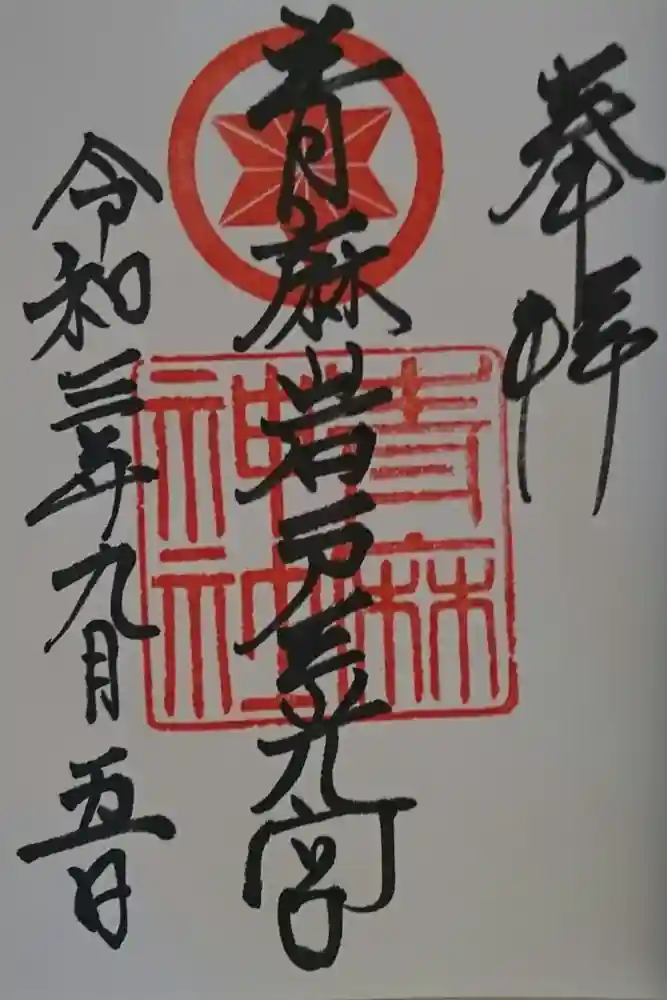 奉拝
青麻岩戸三光宮
青麻
神社
令和三年九月五日